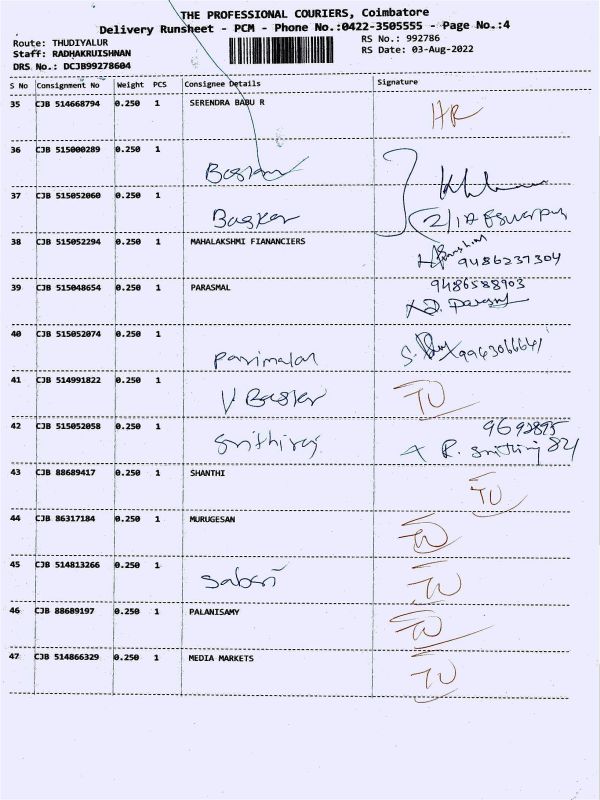 THE PROFESSIONAL COURIERS, Coimbatore
Delivery Runsheet - PCM - Phone No.:0422-3505555 - Page No.:4
Route: THUDIYALUR
Staff: RADHAKRUISHNAN
DRS No.: DCJB99278604
RS No.: 992786
RS Date: 03-Aug-2022
S No Consignment No Weight PCS Consignee Details Signature
35 CJB 514668794 0.250 1 SERENDRA BABU R HR
36 CJB 515000289 0.250 1 Baskar
37 CJB 515052060 0.250 1 Baskar 2/1A
38 CJB 515052294 0.250 1 MAHALAKSHMI FIANANCIERS 9486237304
39 CJB 515048654 0.250 1 PARASMAL 9486588903
40 CJB 515052074 0.250 1 Parimalan
41 CJB 514991822 0.250 1 V Baskar TU
42 CJB 515052058 0.250 1 Srithiraj 9692895
R. Srithiraj 84
43 CJB 88689417 0.250 1 SHANTHI TU
44 CJB 86317184 0.250 1 MURUGESAN TU
45 CJB 514813266 0.250 1 Saberi TU
46 CJB 88689197 0.250 1 PALANISAMY TU
47 CJB 514866329 0.250 1 MEDIA MARKETS TU